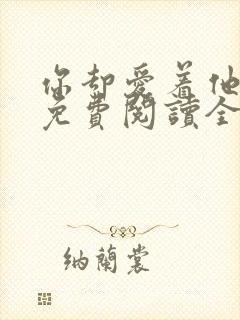 你却愛着他
免費閱讀全
納蘭裳